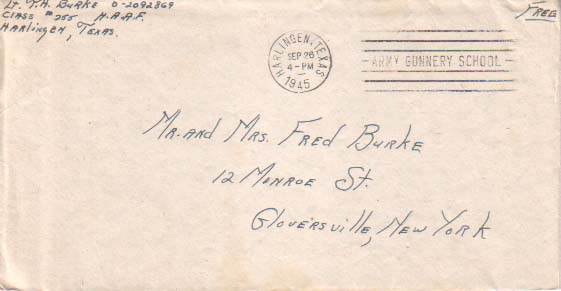 Lt. T.H. Burke O-2092869
Class #255 H.A.A.F.
Harlingen, Texas.
Free
HARLINGEN, TEXAS
SEP 26
4-PM
1945
ARMY GUNNERY SCHOOL
Mr. and Mrs. Fred Burke
12 Monroe St.
Gloversville, New York